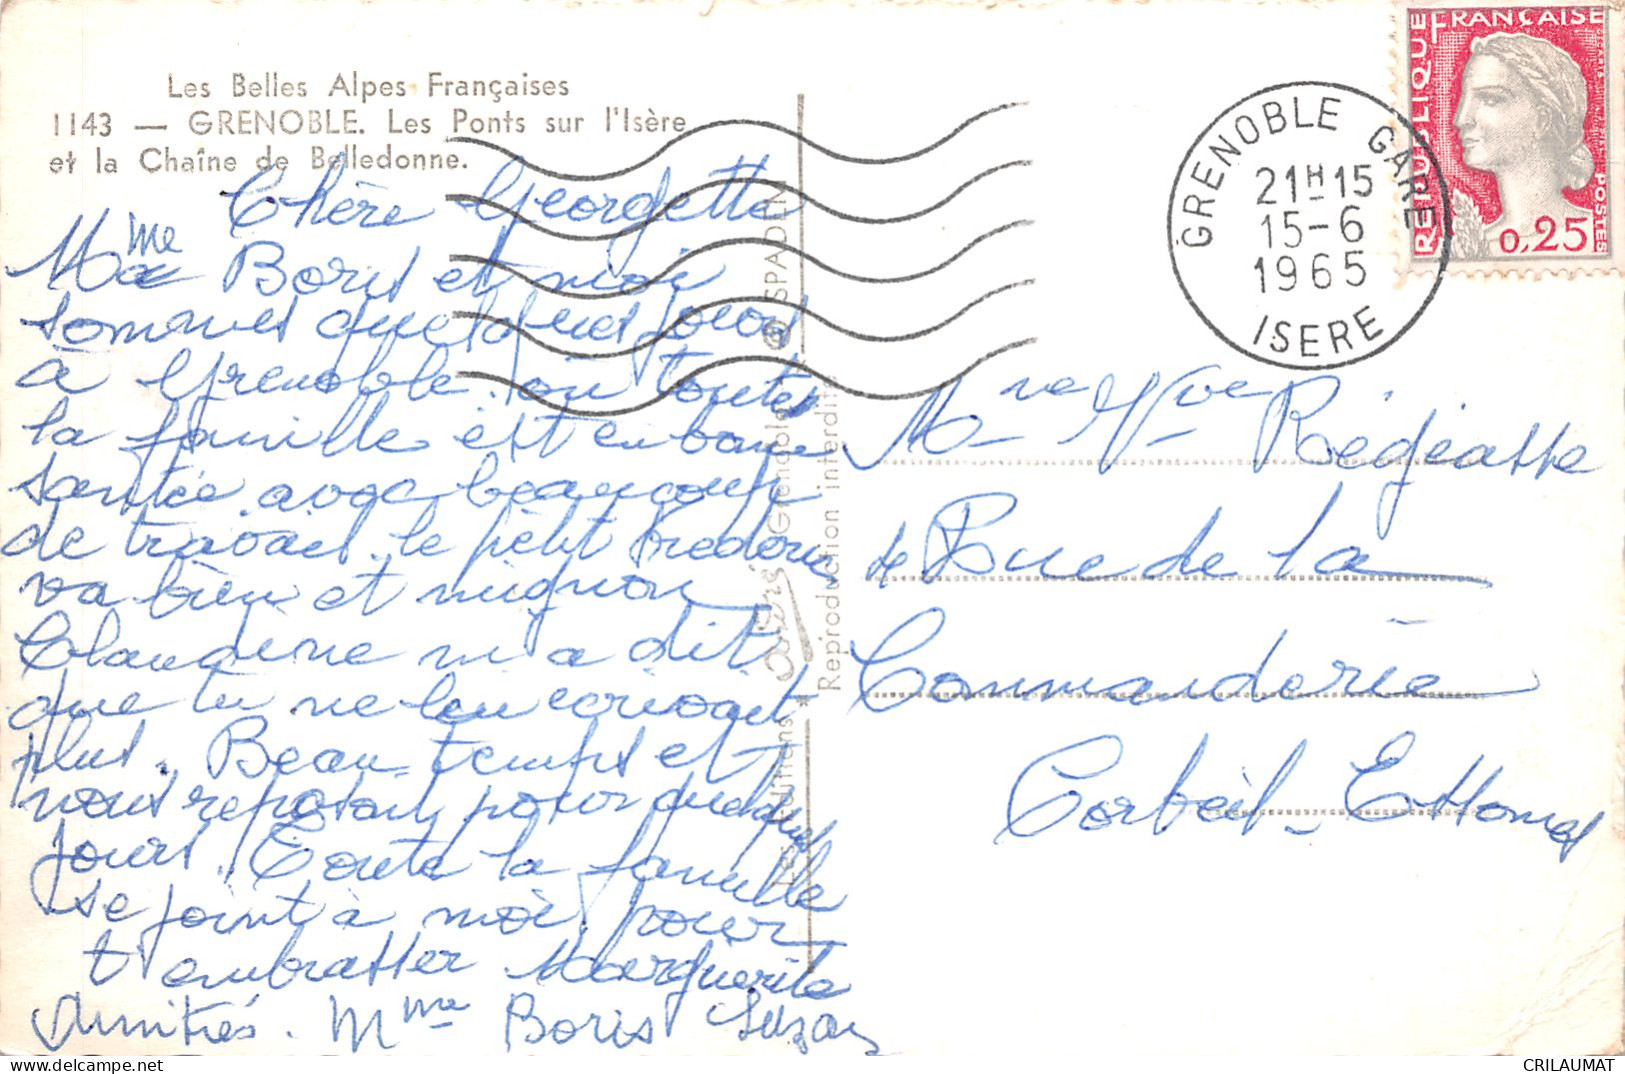 Les Belles Alpes Françaises
1143 — GRENOBLE. Les Ponts sur l'Isère
et la Chaîne de Belledonne.
Chère Georgette
Mme Boris et moi
sommes quelques jours
à Grenoble où toute
la famille est en bonne
santée avec beaucoup
de travail. le petit Frederic
va bien et mignon
Claudine m'a dit
que tu ne lui ecrivait
plus. Beau temps et
nous reposon pour quelques
jours. Toute la famille
se joint à moi pour
t'embrasser Marguerite
Amitiés. Mme Boris Suzan
Les Editions
Grenoble
© SPADEM
Reproduction interdite
GRENOBLE GARE
21H15
15-6
1965
ISERE
REPUBLIQUE FRANÇAISE
POSTES
0,25
Mme Vve
Rue de la
Commanderie
Corbeil-Essonnes
CRILAUMAT